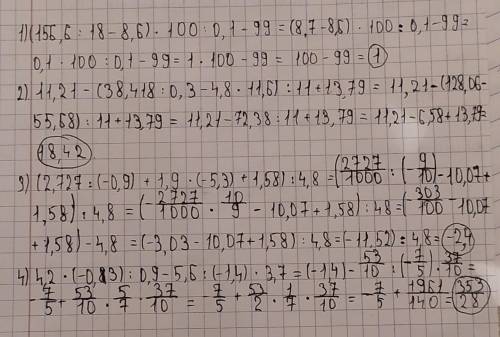 1)(156,6 : 18 - 8,6) · 100 : 0,1 - 99 = (8,7 - 8,6) · 100 : 0,1 - 99 =
0,1 · 100 : 0,1 - 99 = 1 · 100 - 99 = 100 - 99 = 1
2) 11,21 - (38,418 : 0,3 - 4,8 · 11,6) : 11 + 13,79 = 11,21 - (128,06 -
55,68) : 11 + 13,79 = 11,21 - 72,38 : 11 + 13,79 = 11,21 - 6,58 + 13,79 =
18,42
3) (2,727 : (-0,9) + 1,9 · (-5,3) + 1,58) : 4,8 = (2727/1000 : (-9/10) - 10,07 +
1,58) : 4,8 = (-2727/1000 · 10/9 - 10,07 + 1,58) : 4,8 = (-303/100 - 10,07
+ 1,58) - 4,8 = (-3,03 - 10,07 + 1,58) : 4,8 = (-11,52) : 4,8 = -2,4
4) 4,2 · (-0,3) : 0,9 - 5,6 : (-1,4) · 3,7 = (-1,4) - 53/10 : (-7/5) · 37/10 =
-7/5 + 53/10 · 5/7 · 37/10 = -7/5 + 53/2 · 1/7 · 37/10 = -7/5 + 1961/140 = 353/28